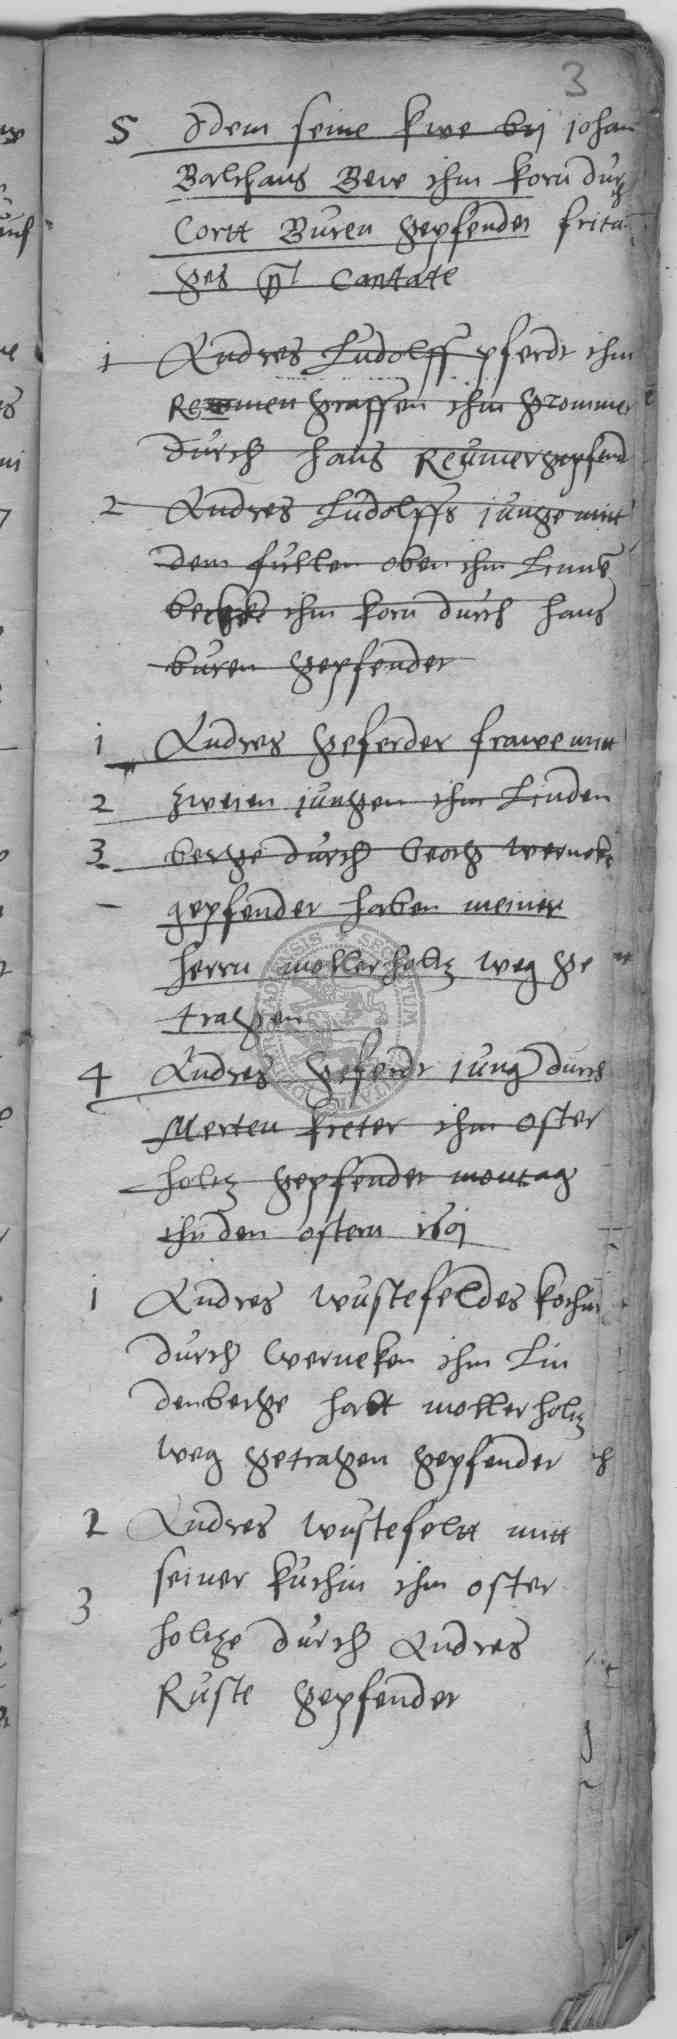 3
5 Idem seine kwe bij johan
Balthans Bew ihm korn durch
Cortt Buren gepfendet frita
ges pt Cantate
1 Andres Ludolff pferdt ihm
graffen ihm grommet
durch hans Reumer gepfend
2 Andres Ludolffs junge mitt
dem fullen oben ihm Linne
becke ihm korn durch hans
buren gepfendet
1 Andres geferdes frawe mitt
2 zweien jungen ihm Linden
3 berge durch Georg Werneke
gepfendet haben meiner
herrn mollerholtz weg ge
tragen
4 Andres geferdt jung durch
Merten kreter ihm Oster
holtz gepfendet montag
ihn den ostern
1 Andres Wustefeldes kochin
durch Werneken ihm Lin
denberge hatt mollerholtz
weg getragen gepfendet
2 Andres Wustefeltt mitt
3 seiner kuchin ihm oster
holtze durch Andres
Ruste gepfendet